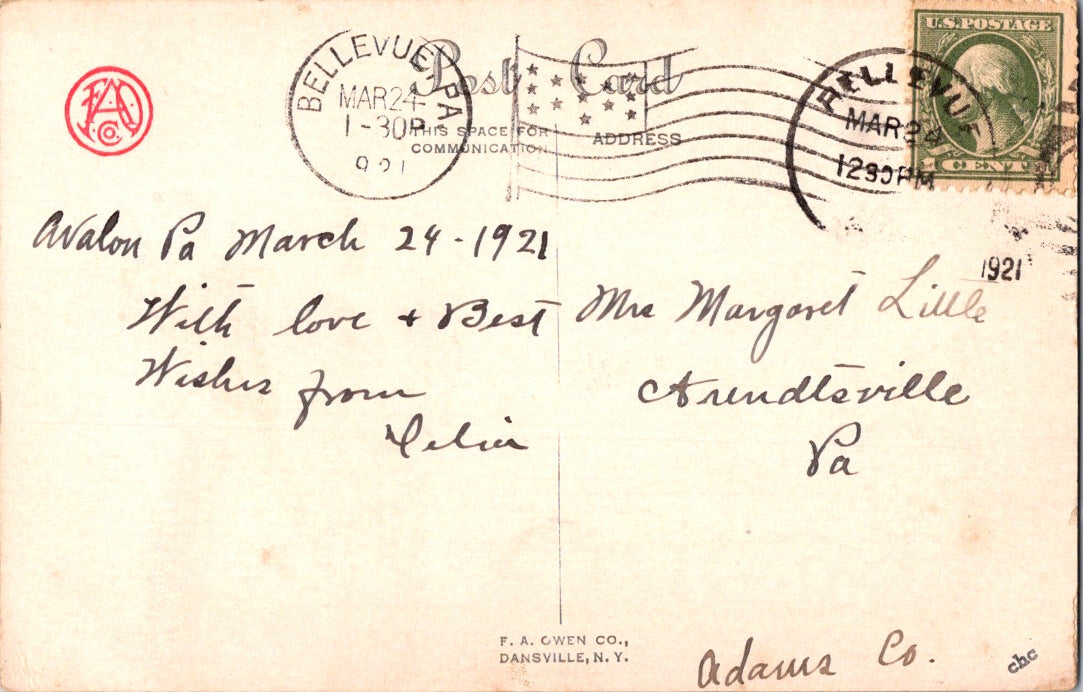 FAO Co.
Post Card
THIS SPACE FOR
COMMUNICATION
ADDRESS
BELLEVUE, PA
MAR 24
1-30P
1921
BELLEVUE
MAR 24
1230PM
1921
U.S. POSTAGE
1 CENT 1
Avalon Pa March 24-1921
With love + Best
Wishes from
Delia
Mrs Margaret Little
Arendtsville
Pa
Adams Co.
F. A. OWEN CO.,
DANSVILLE, N. Y.
chc